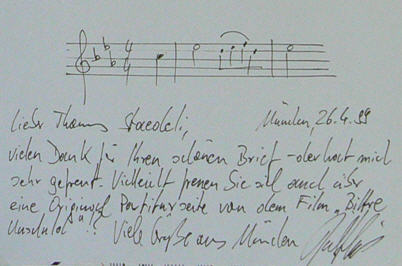 Lieber Thomas Staedeli, München, 26.4.99
vielen Dank für Ihren schönen Brief - der hat mich
sehr gefreut. Vielleicht freuen Sie sich auch über
eine Original Partiturseite von dem Film "Bittere
Unschuld"!! Viele Grüße aus München